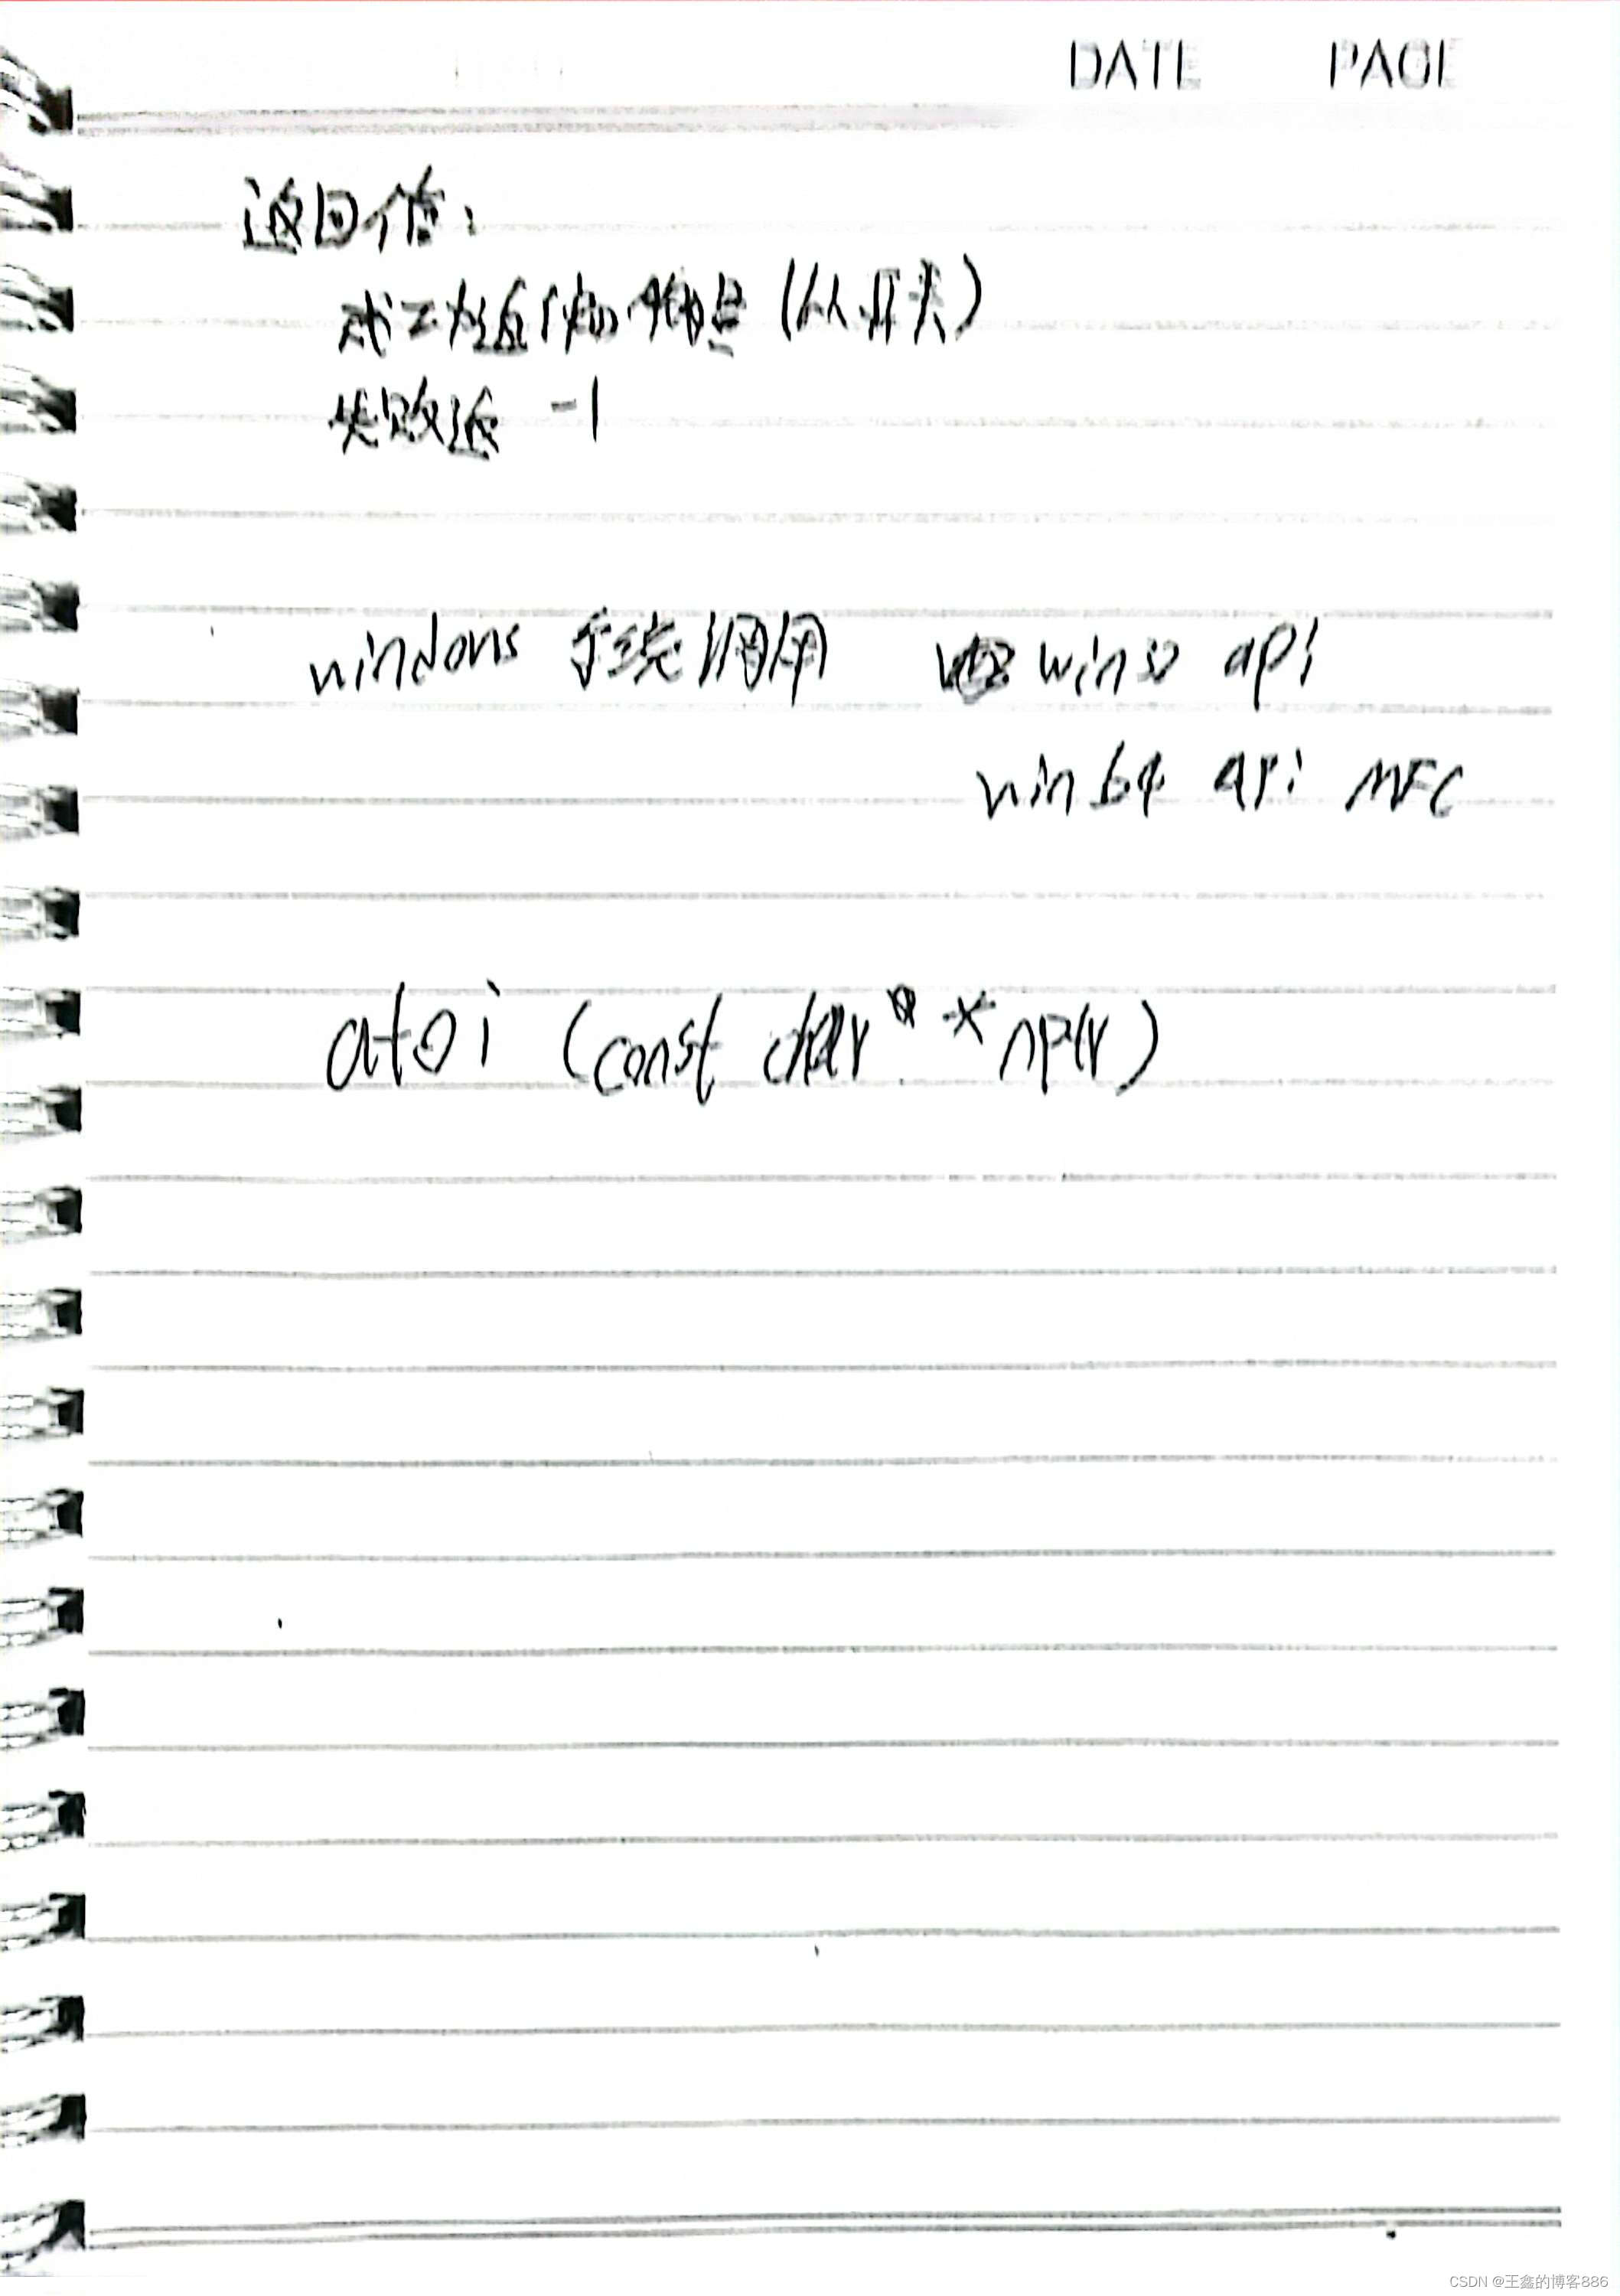 DATE PAGE
返回值:
成功返偏移量 (从开头)
失败返 -1
windows 系统调用 win32 api
win64 api MFC
atoi (const char *nptr)
CSDN @王鑫的博客886